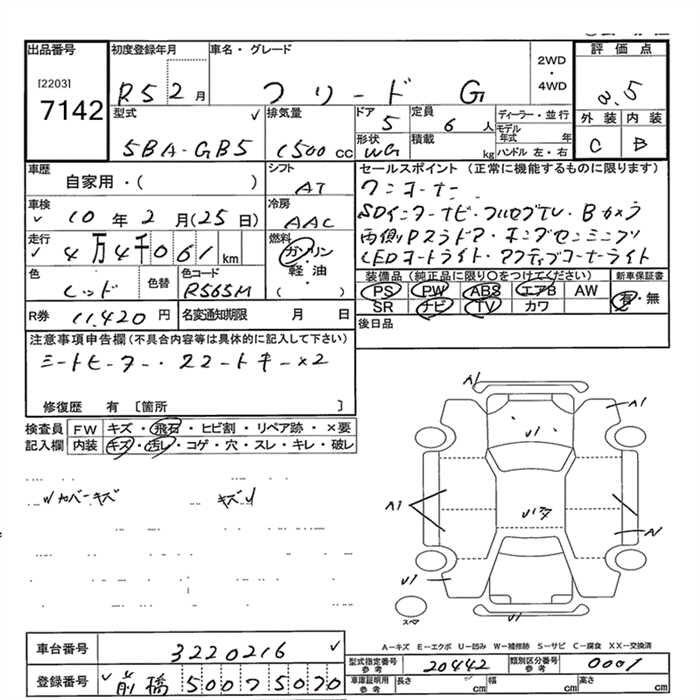 出品番号 初度登録年月 車名・グレード 2WD・4WD 評価点
[2203]
7142 R5 2月 フリード G 3.5
型式 排気量 ドア 定員 ディーラー・並行 外装 内装
5BA-GB5 1500cc 5 6人 モデル年式 年 C B
形状 積載 WG kg ハンドル 左・右
車歴 シフト セールスポイント (正常に機能するものに限ります)
自家用・( ) AT ワンオーナー
車検 冷房 SDインターナビ・フルセグTV・Bカメラ
10年2月(25日) AAC 両側Pスラドア・ホンダセンシング
走行 4万4千061km 燃料 LEDオートライト・アクティブコーナーライト
ガソリン・軽油( )
色 色替 色コード 装備品(純正品に限り○をつけてください) 新車保証書
レッド R565M PS PW ABS エアB AW 有・無
SR ナビ TV カワ
R券 11,420円 名変通知期限 月 日 後日品
注意事項申告欄(不具合内容等は具体的に記入して下さい)
シートヒーター・スマートキー×2
修復歴 有 [箇所 ]
検査員 FW キズ・飛石・ヒビ割・リペア跡・×要
記入欄 内装 キズ・汚レ・コゲ・穴・スレ・キレ・破レ
A1
A1
U1
カバーキズ キズU
A1
U1
A1
U1
スペア
U1
A−キズ E−エクボ U−凹み W−補修跡 S−サビ C−腐食 XX−交換済
車台番号 3220216 型式指定番号 参考 20442 類別区分番号 参考 0001
登録番号 前橋 500 75020 車庫証明用 参考 長さ cm 幅 cm 高さ cm